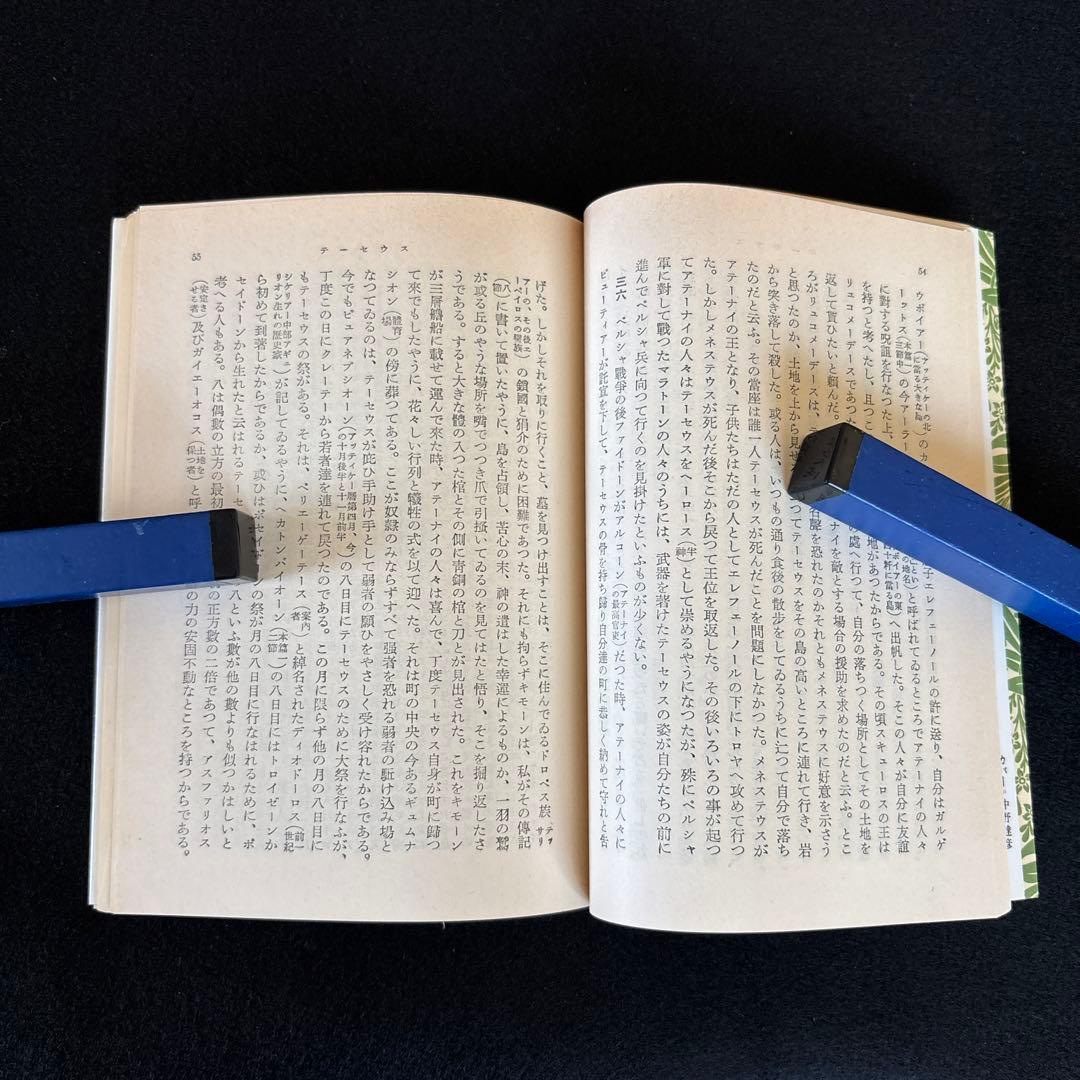 54
ウボイアー(アッティケーの北に當る大きな島)の
子エレフェーノールの許に送り、自分はガルゲ
ーットス(本篇三節中)の今アーラー
と呼ばれてゐるところでアテーナイの人々
に對する呪詛を行なつた上、
へ出帆した。そこの人々が自分に友誼
を持つと考へたし、且つこ
地があつたからである。その頃スキューロスの王は
リュコメーデースであつた
の處へ行つて、自分の落ちつく場所としてその土地を
返して貰ひたいと頼んだ。
ナイを敵とする場合の援助を求めたのだと云ふ。とこ
ろがリュコメーデースは、
名聲を恐れたのかそれともメネステウスに好意を示さう
と思つたのか、土地を上から見せ
つてテーセウスをその島の高いところに連れて行き、岩
から突き落して殺した。或る人は、いつもの通り食後の散步をしてゐるうちに辷つて自分で落ち
たのだと云ふ。その當座は誰一人テーセウスが死んだことを問題にしなかつた。メネステウスが
アテーナイの王となり、子供たちはただの人としてエレフェーノールの下にトロヤへ攻めて行つ
た。しかしメネステウスが死んだ後そこから戻つて王位を取返した。その後いろいろの事が起つ
てアテーナイの人々はテーセウスをヘーロース(半神)として崇めるやうになつたが、殊にペルシャ
軍に對して戰つたマラトーンの人々のうちには、武器を著けたテーセウスの姿が自分たちの前に
進んでペルシャ兵に向つて行くのを見掛けたといふものが少くない。
三六 ペルシャ戰爭の後ファイドーンがアルコーン(アテーナイの最高官吏)だつた時、アテーナイの人々に
ピューティアーが託宣を下して、テーセウスの骨を持ち歸り自分達の町に恭しく納めて守れと吿
カバー・中野達彦
テーセウス
55
げた。しかしそれを取りに行くこと、墓を見つけ出すことは、そこに住んでゐるドロペス族(テッサリアーの、その後エーペイロスの蠻族)の鎖國と狷介のために困難であつた。それにも拘らずキモーンは、私がその傳記
(八節)に書いて置いたやうに、島を占領し、苦心の末、神の遣はした幸運によるものか、一羽の鷲
が或る丘のやうな場所を嘴でつつき爪で引掻いてゐるのを見てはたと悟り、そこを掘り返したさ
うである。すると大きな體の人つた棺とその側に靑銅の槍と刀とが見出された。これをキモーン
が三層艪船に載せて運んで來た時、アテーナイの人々は喜んで、丁度テーセウス自身が町に歸つ
て來でもしたやうに、花々しい行列と犧牲の式を以て迎へた。それは町の中央の今あるギュムナ
シオン(體育場)の傍に葬つてある。ここが奴隷のみならずすべて强者を恐れる弱者の駈け込み場と
なつてゐるのは、テーセウスが庇ひ手助け手として弱者の願ひをやさしく受け容れたからである。
今でもピュアネプシオーン(アッティケー曆第四月、今の十月後半と十一月前半)の八日目にテーセウスのために大祭を行なふが、
丁度この日にクレーテーから若者達を連れて戾つたのである。この月に限らず他の月の八日目に
もテーセウスの祭がある。それは、ペリエーゲーテース(案內者)と綽名されたディオドーロス(前一世紀
シケリアー中部アギュリオン生れの歷史家)が記してゐるやうに、ヘカトンバイオーン(本篇一二節)の八日目にはトロイゼーンか
ら初めて到著したからであるか、或ひはポセイドーンの祭が月の八日目に行なはれるために、ポ
セイドーンから生れたと云はれるテーセ
八といふ數が他の數よりも似つかはしいと
考へる人もある。八は偶數の立方の最初
の正方數の二倍であつて、アスファリオス
(安定させる者)及びガイエーオコス(土地を保つ者)と呼
の力の安固不動なところを持つからである。